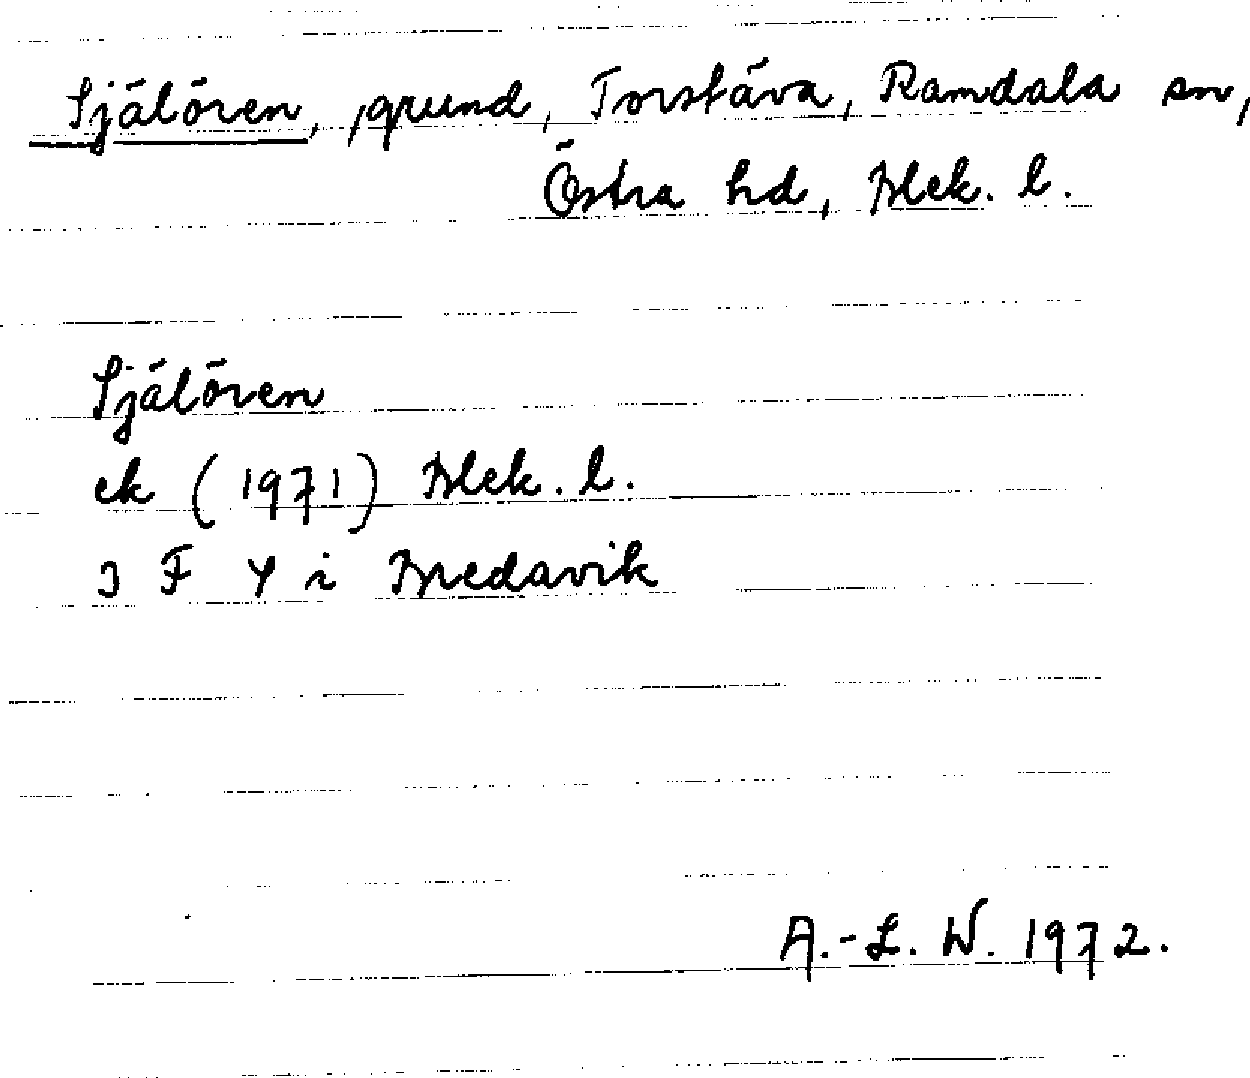 Själören, grund, Torstäva, Ramdala sn,
Östra hd, Blek. l.
Själören
ek (1971) Blek. l.
3 F Y i Bredavik
A.-L. W. 1972.